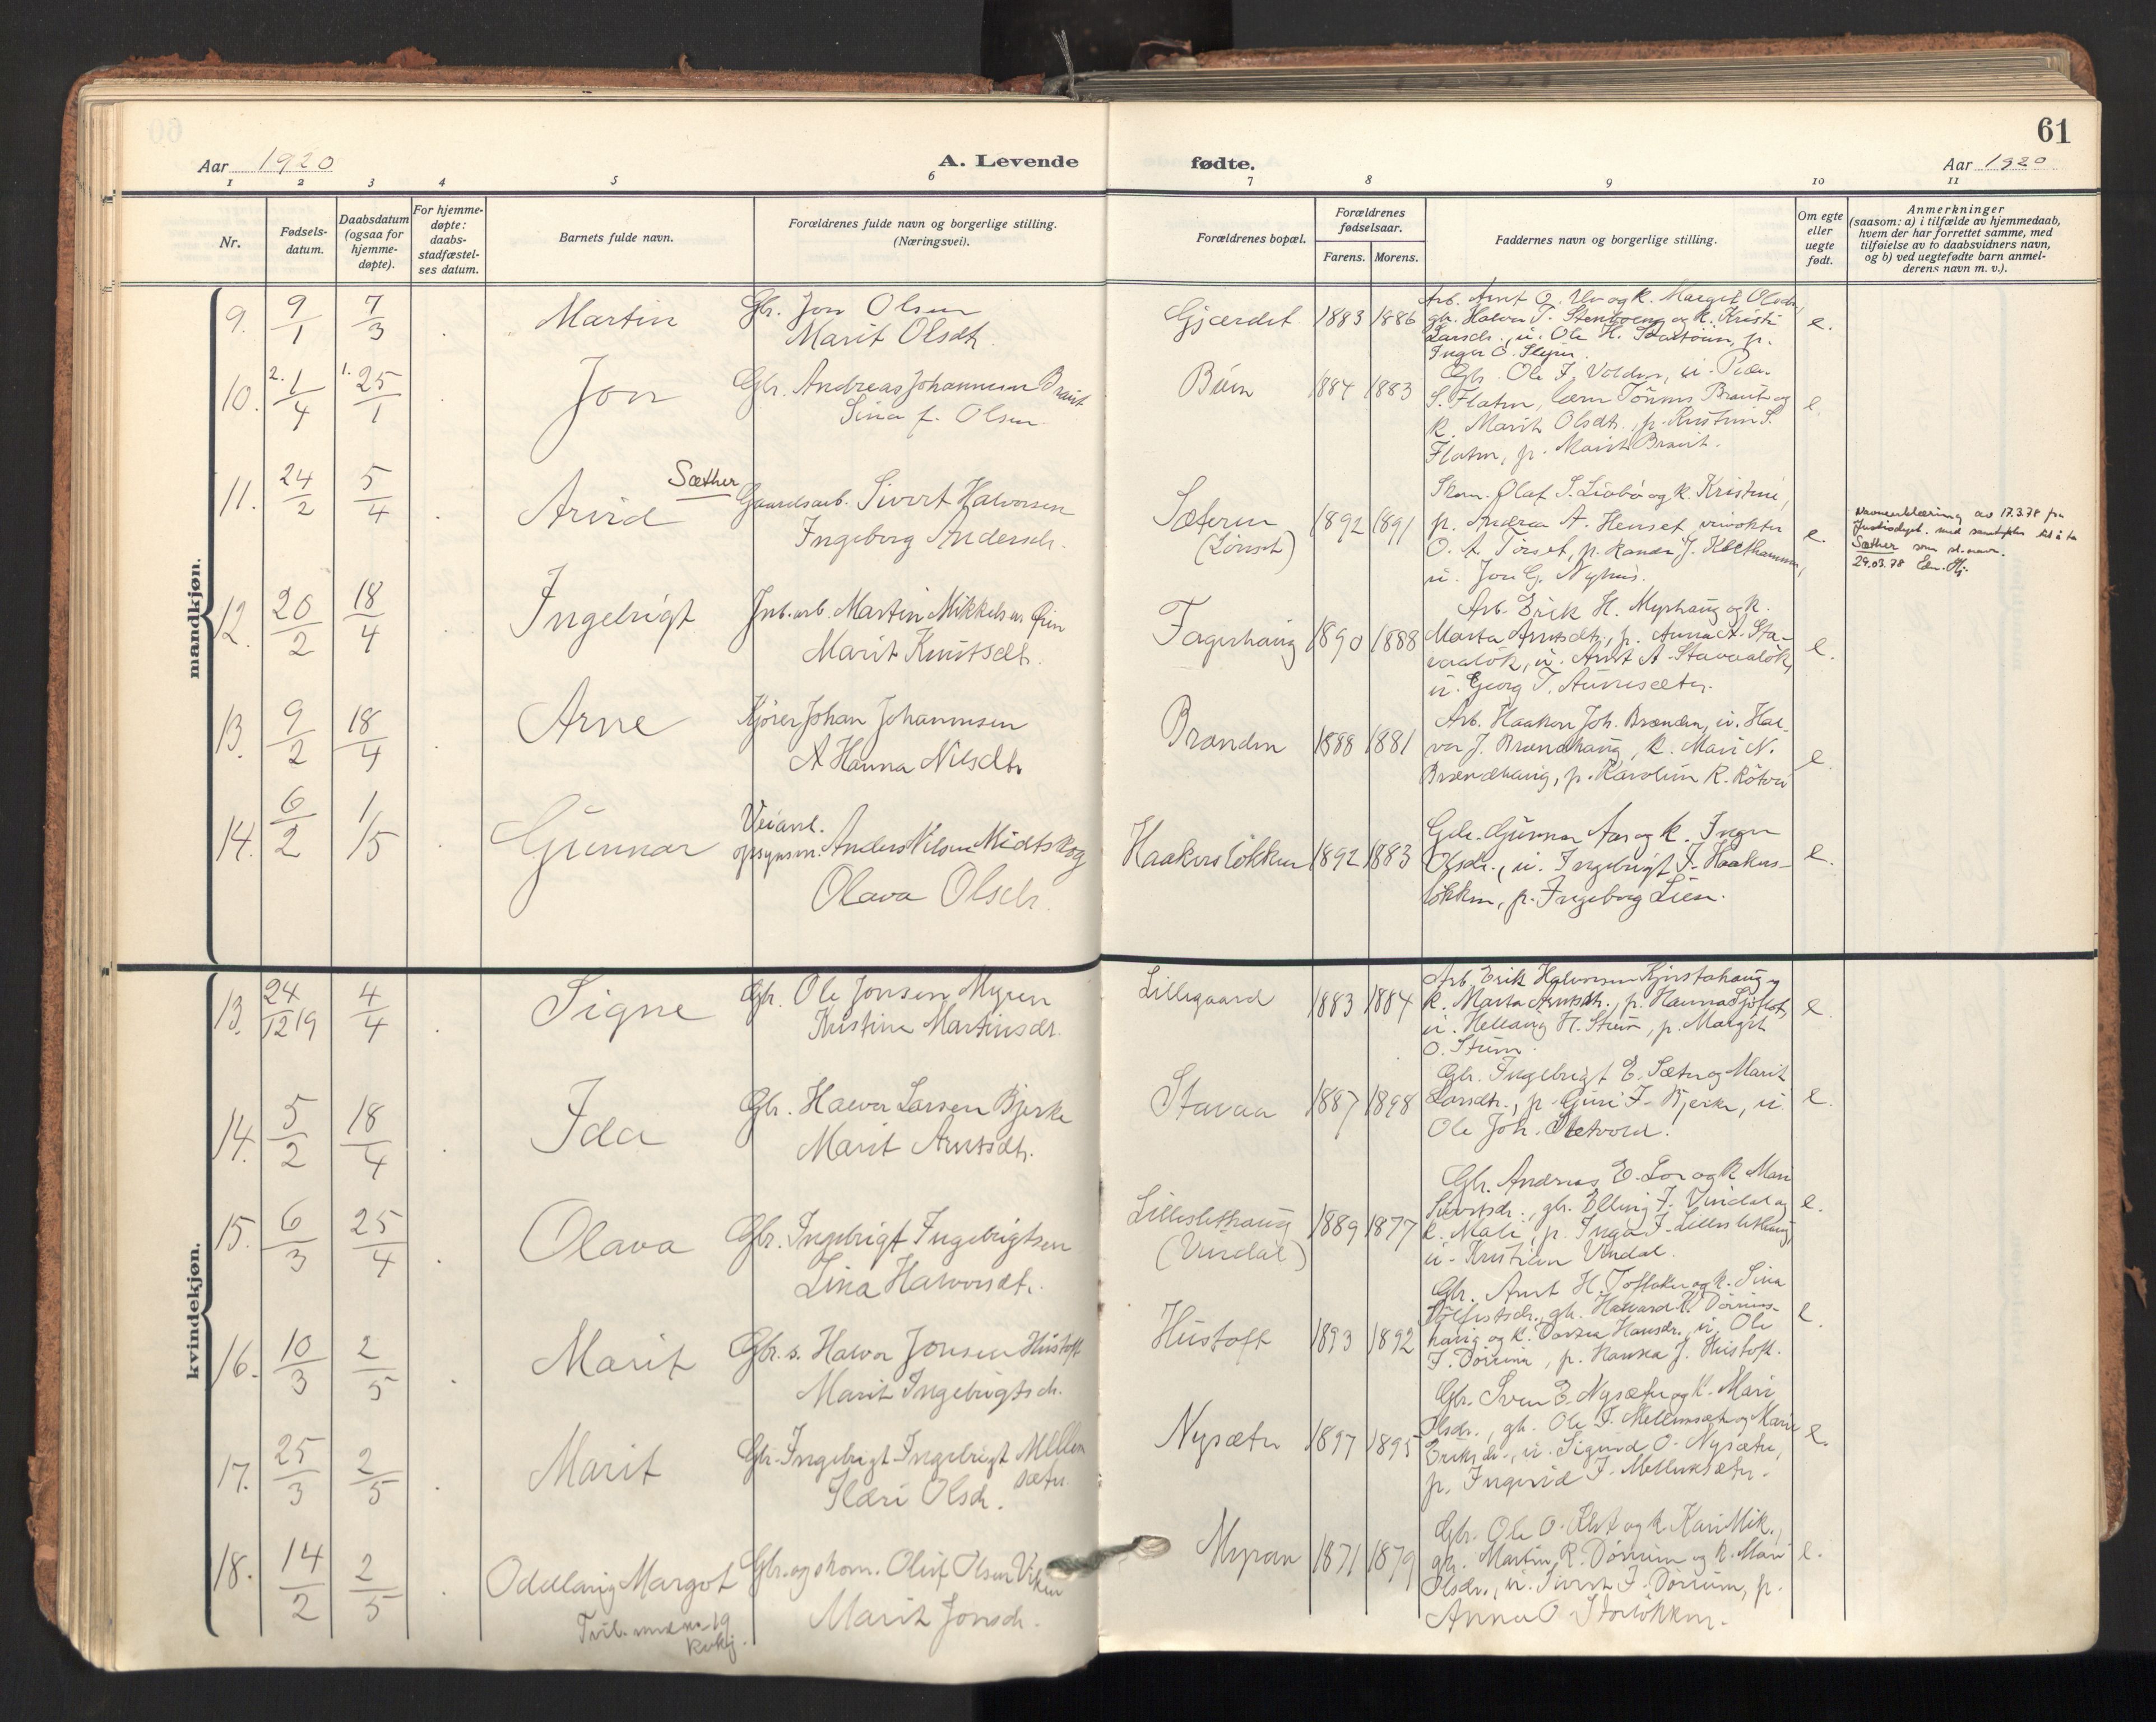 61
Aar 1920
A. Levende
fødte.
Aar 1920
1 2 3 4 5 6 7 8 9 10 11
Nr.
Fødsels-
datum.
Daabsdatum
(ogsaa for
hjemme-
døpte).
For hjemme-
døpte:
daabs-
stadfæstel-
ses datum.
Barnets fulde navn.
Forældrenes fulde navn og borgerlige stilling.
(Næringsvei).
Forældrenes bopæl.
Forældrenes
fødselsaar.
Farens. Morens.
Faddernes navn og borgerlige stilling.
Om egte
eller
uegte
født.
Anmerkninger
(saasom: a) i tilfælde av hjemmedaab,
hvem der har forrettet samme, med
tilføielse av to daabsvidners navn,
og b) ved uegtefødte barn anmel-
derens navn m. v.).
mandkjøn.
9. 9/1 7/3 Martin
Gbr. Jon Olsen
Marit Olsdtr.
Gjærdet 1883 1886
Arb. Arnt O. og k. Margit Olsdtr,
gbr. Halvor T. og k. Kristi
Larsdr., u. Ole H. p.
Inger O.
e.
10. 2. 1/4 1. 25/1 Jon
Gbr. Andreas Johannesen Braut
Lina f. Olsen.
Bøen 1884 1883
Gbr. Ole J. Volden, u. Peder
S. Flaten, Brauto og
k. Marit Olsdtr., p. Kristine S.
Flaten, p. Marit Braut.
e.
11. 24/2 5/4 Arvid Sæther
Gaardsarb. Sivert Halvorsen
Ingeborg Andersdr.
Sæteren
(Lønset)
1892 1891
Skom. Olaf S. Liabø og k. Kristine,
p. Andrea A. Henset,
O. A. Tørset, p. J. Klethammer,
u. Jon G. Nyhus.
e.
Navneerklæring av 17.3.78 fra
Justisdept. med samtykke til å ta
Sæther som sl.navn.
29.03.78
12. 20/2 18/4 Ingebrigt
Jnb.arb. Martin Mikkelsen
Marit Knutsdtr.
Fagerhaug 1890 1888
Arb. Erik H. Myrhaug og k.
Marta Arntsdtr., p. Anna A. Sta-
vaaløk, u. Arnt A. Stavaaløk,
u. Georg T. Aunesæter.
e.
13. 9/2 18/4 Arne
Kjører Johan Johannesen
A Hanna Nilsdtr
Brænden 1888 1881
Arb. Haakon Joh. Brænden, u. Hal-
vor J. Brændhaug, k. Mari N.
Brændhaug, p. Karoline R.
e.
14. 6/2 1/5 Gunnar
Veianl.
opsynsm. Anders Nilsen Midtskog
Olava Olsdr.
Haakersløkken 1892 1883
Gbr. Gunnar Aas og k. Inger
Olsdr., u. Ingebrigt J. Haakers-
løkken, p. Ingeborg Lien.
e.
kvindekjøn.
13. 24/12 19 4/4 Signe
Gbr. Ole Jonsen Myren
Kristine Martinsdr.
Lillegaard 1883 1884
Arb. Erik Halvorsen
k. Marta Arntsdtr., p. Hanna
u. H. Stuen, p. Margit
O. Stuen.
e.
14. 5/2 18/4 Ida
Gbr. Halvor Larsen Bjerke
Marit Arntsdtr.
Stavaa 1887 1898
Gbr. Ingebrigt E. Sæter og Marit
Larsdtr., p. Guri J. Bjerke, u.
Ole Joh. Sletvold.
e.
15. 6/3 25/4 Olava
Gbr. Ingebrigt Ingebrigtsen
Lina Halvorsdtr.
Lillesletthaug
(Vindal)
1889 1877
Gbr. Andreas E. Lo og k. Mari
Sivertsdr., gbr. Elling J. Vindal og
k. Mali, p. Inga J. Lillesletthaug,
u. Kristian Vindal.
e.
16. 10/3 2/5 Marit
Gbr. s. Halvor Jonsen Hustoft
Marit Ingebrigtsdr.
Hustoft 1893 1892
Gbr. Arnt H. Toftaker og k. Lina
gbr. Halvard K. Dørrums-
haug og k. Hansdr., u. Ole
J. Dørrum, p. Hanna J. Hustoft.
e.
17. 25/3 2/5 Marit
Gbr. Ingebrigt Ingebrigt Mellem
sæter
Olsdr.
Nysæter 1897 1895
Gbr. Sven E. Nysæter og k. Mari
Olsdr., gbr. Ole J. Mellemsæter og Marie
Eriksdr., u. Sigurd O. Nysæter,
p. Ingerid J. Mellemsæter.
e.
18. 14/2 2/5 Oddlaug Margot
Tvil. med no. 19
kvkj.
Gbr. og skom. Oluf Olsen Viken
Marit Jonsdr.
Myran 1871 1879
Gbr. Ole O. og k. Kari Mik.,
gbr. Martin R. Dørrum og k. Mari
Olsdr., u. Sivert J. Dørrum, p.
Anna O. Storløkken.
e.